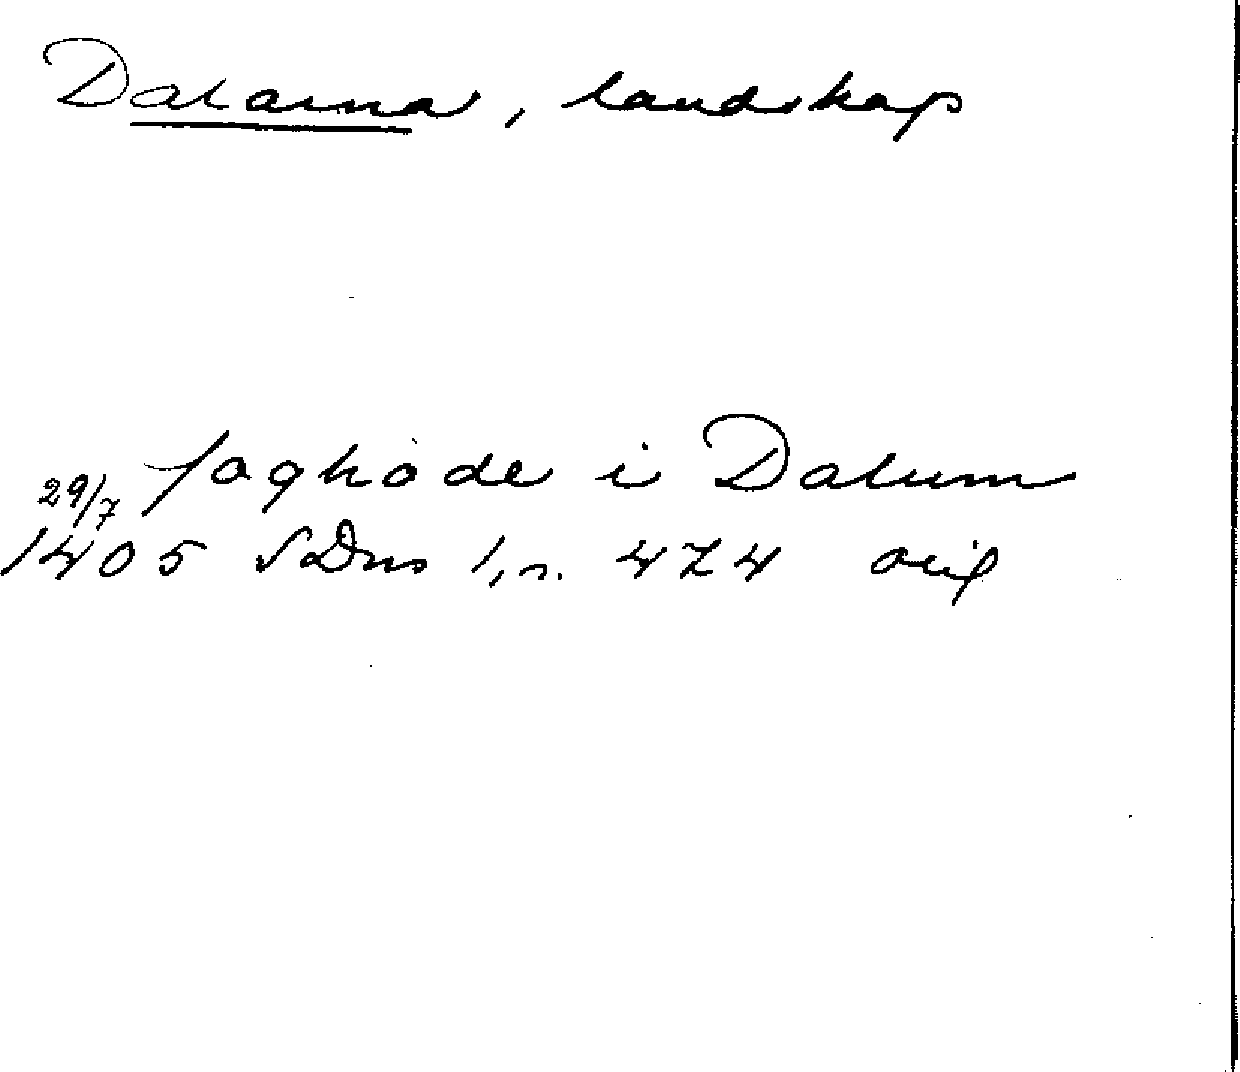 Dalarna, landskap
foghode i Dalum
29/7
1405 SDns 1, n. 474 orig